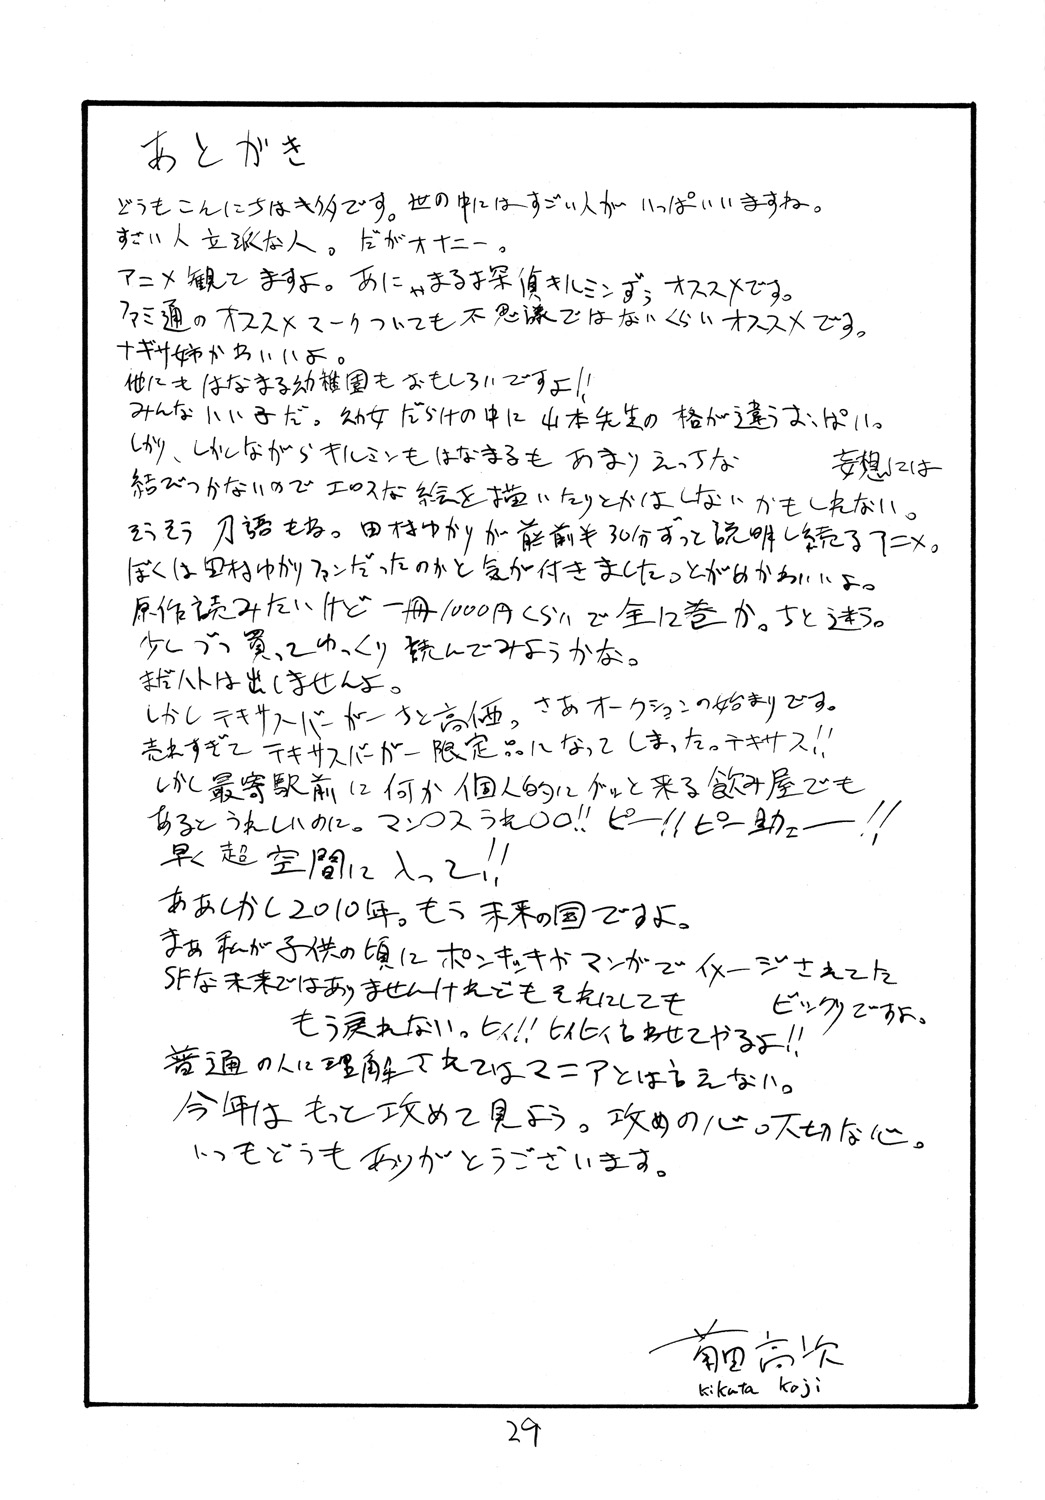 あとがき
どうもこんにちはキクタです。世の中にはすごい人がいっぱいいますね。
すごい人立派な人。だがオナニー。
アニメ観てますよ。あにゃまる探偵キルミンずぅオススメです。
ファミ通のオススメマークついても不思議ではないくらいオススメです。
ナギサ姉かわいいよ。
他にもはなまる幼稚園もおもしろいですよ!!
みんないい子だ。幼女だらけの中に山本先生の格が違うおっぱい。
しかし、しかしながらキルミンもはなまるもあまりえっちな 妄想には
結びつかないのでエロスな絵を描いたりとかはしないかもしれない。
そうそう刀語もね。田村ゆかりが前半30分ずっと説明し続るアニメ。
ぼくは田村ゆかりファンだったのかと気が付きました。とがめかわいいよ。
原作読みたいけど一冊1000円くらいで全12巻か。ちと迷う。
少しづつ買ってゆっくり読んでみようかな。
まだハトは出しませんよ。
しかしテキサスバーガーちと高価。さあオークションの始まりです。
売れすぎてテキサスバーガー限定品になってしまった。テキサス!!
しかし最寄駅前に何か個人的にグッと来る飲み屋でも
あるとうれしいのに。マン〇スうれ〇〇!!ピー!!ピー助ェー!!
早く超空間に入って!!
ああしかし2010年。もう未来の国ですよ。
まぁ私が子供の頃にポンキッキやマンガでイメージされてた
SFな未来ではありませんけれどもそれにしても ビックリですよ。
もう戻れない。ヒィ!!ヒィヒィ言わせてやるよ!!
普通の人に理解されてはマニアとは言えない。
今年はもっと攻めて見よう。攻めの心。大切な心。
いつもどうもありがとうございます。
菊田高次
Kikuta Koji
29